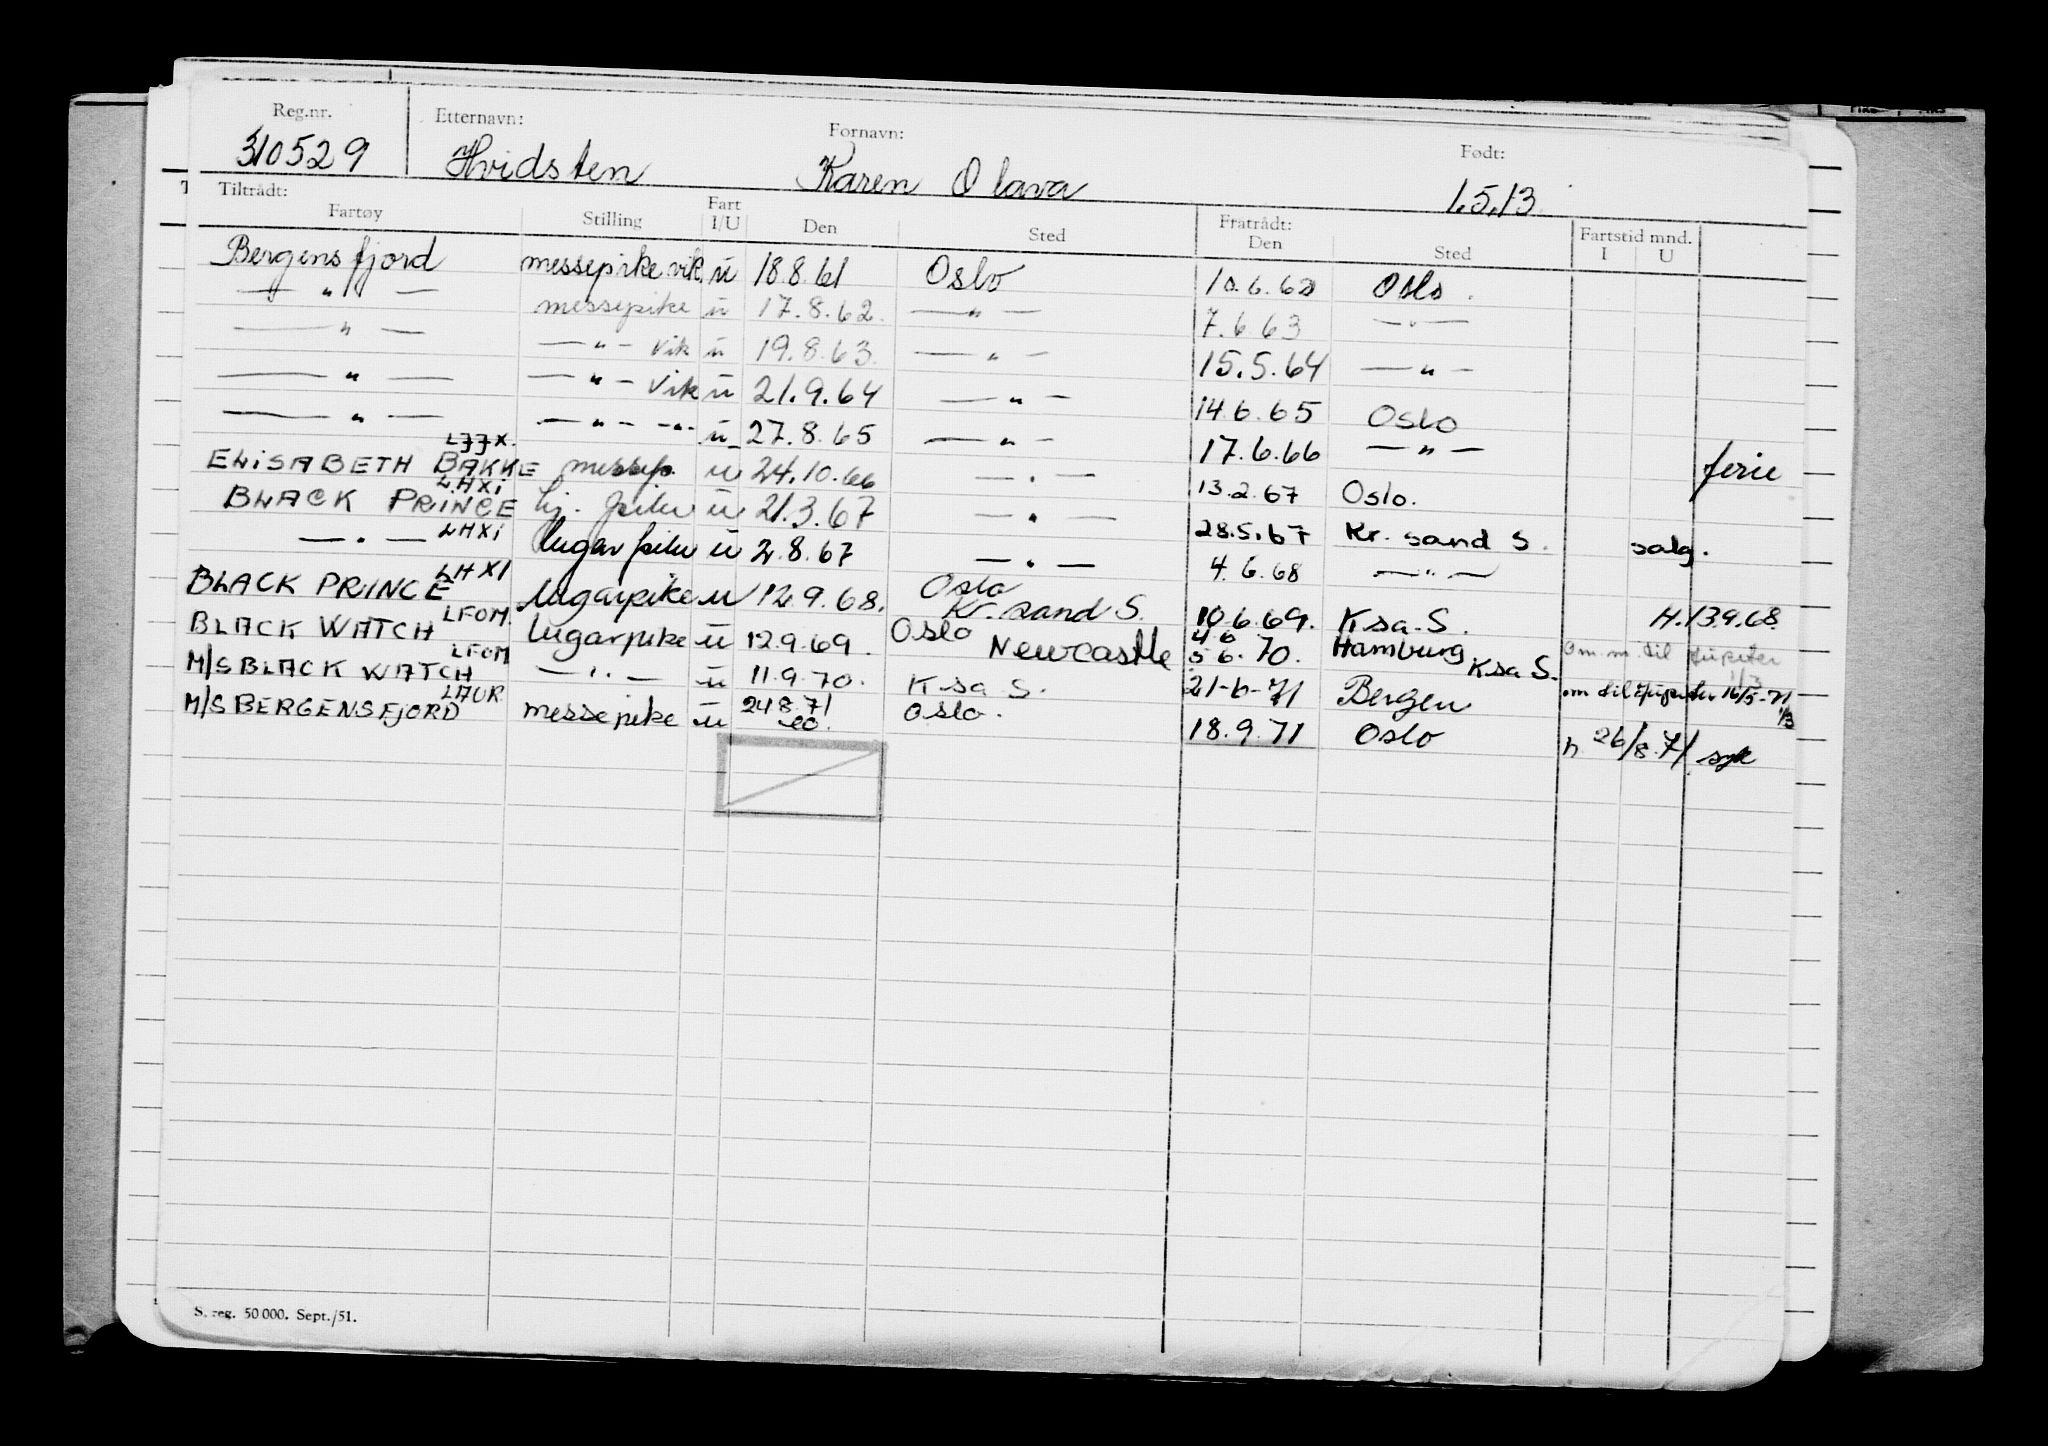 Reg.nr. Etternavn: Fornavn: Født:
310529 Hvidsten Karen Olava 1.5.13
Tiltrådt: Fratrådt: Fartstid mnd.
Fartøy Stilling Fart I/U Den Sted Den Sted I U
Bergensfjord messepike vik. u 18.8.61 Oslo 10.6.62 Oslo.
— " — messepike u 17.8.62. — " — 7.6.63 — " —
— " — — " — vik u 19.8.63. — " — 15.5.64 — " —
— " — — " — vik u 21.9.64 — " — 14.6.65 Oslo
— " — — " — -"- u 27.8.65 — " — 17.6.66 — " — ferie
LJJX.
ELISABETH BAKKE messep. u 24.10.66 — " — 13.2.67 Oslo.
LHXI
BLACK PRINCE u 21.3.67 — " — 28.5.67 Kr. sand S. salg.
— " — LHXI lugarpike u 2.8.67 — " — 4.6.68 — " —
BLACK PRINCE LHXI lugarpike u 12.9.68. Oslo Kr. sand S. 10.6.69. Ksa. S. H. 13.9.68.
BLACK WATCH LFOM. lugarpike u 12.9.69. Oslo Newcastle 4.6 5.6.70. Hamburg Ksa S. om.m. til Jupiter 1/3
M/S BLACK WATCH LFOM — " — u 11.9.70. Ksa S. 21-6-71 Bergen om til Jupiter 16/5-71 1/3
M/S BERGENSFJORD LAOR messepike u 24.8.71 Oslo. 18.9.71 Oslo h. 26/8.71 syk
S. reg. 50 000. Sept./51.